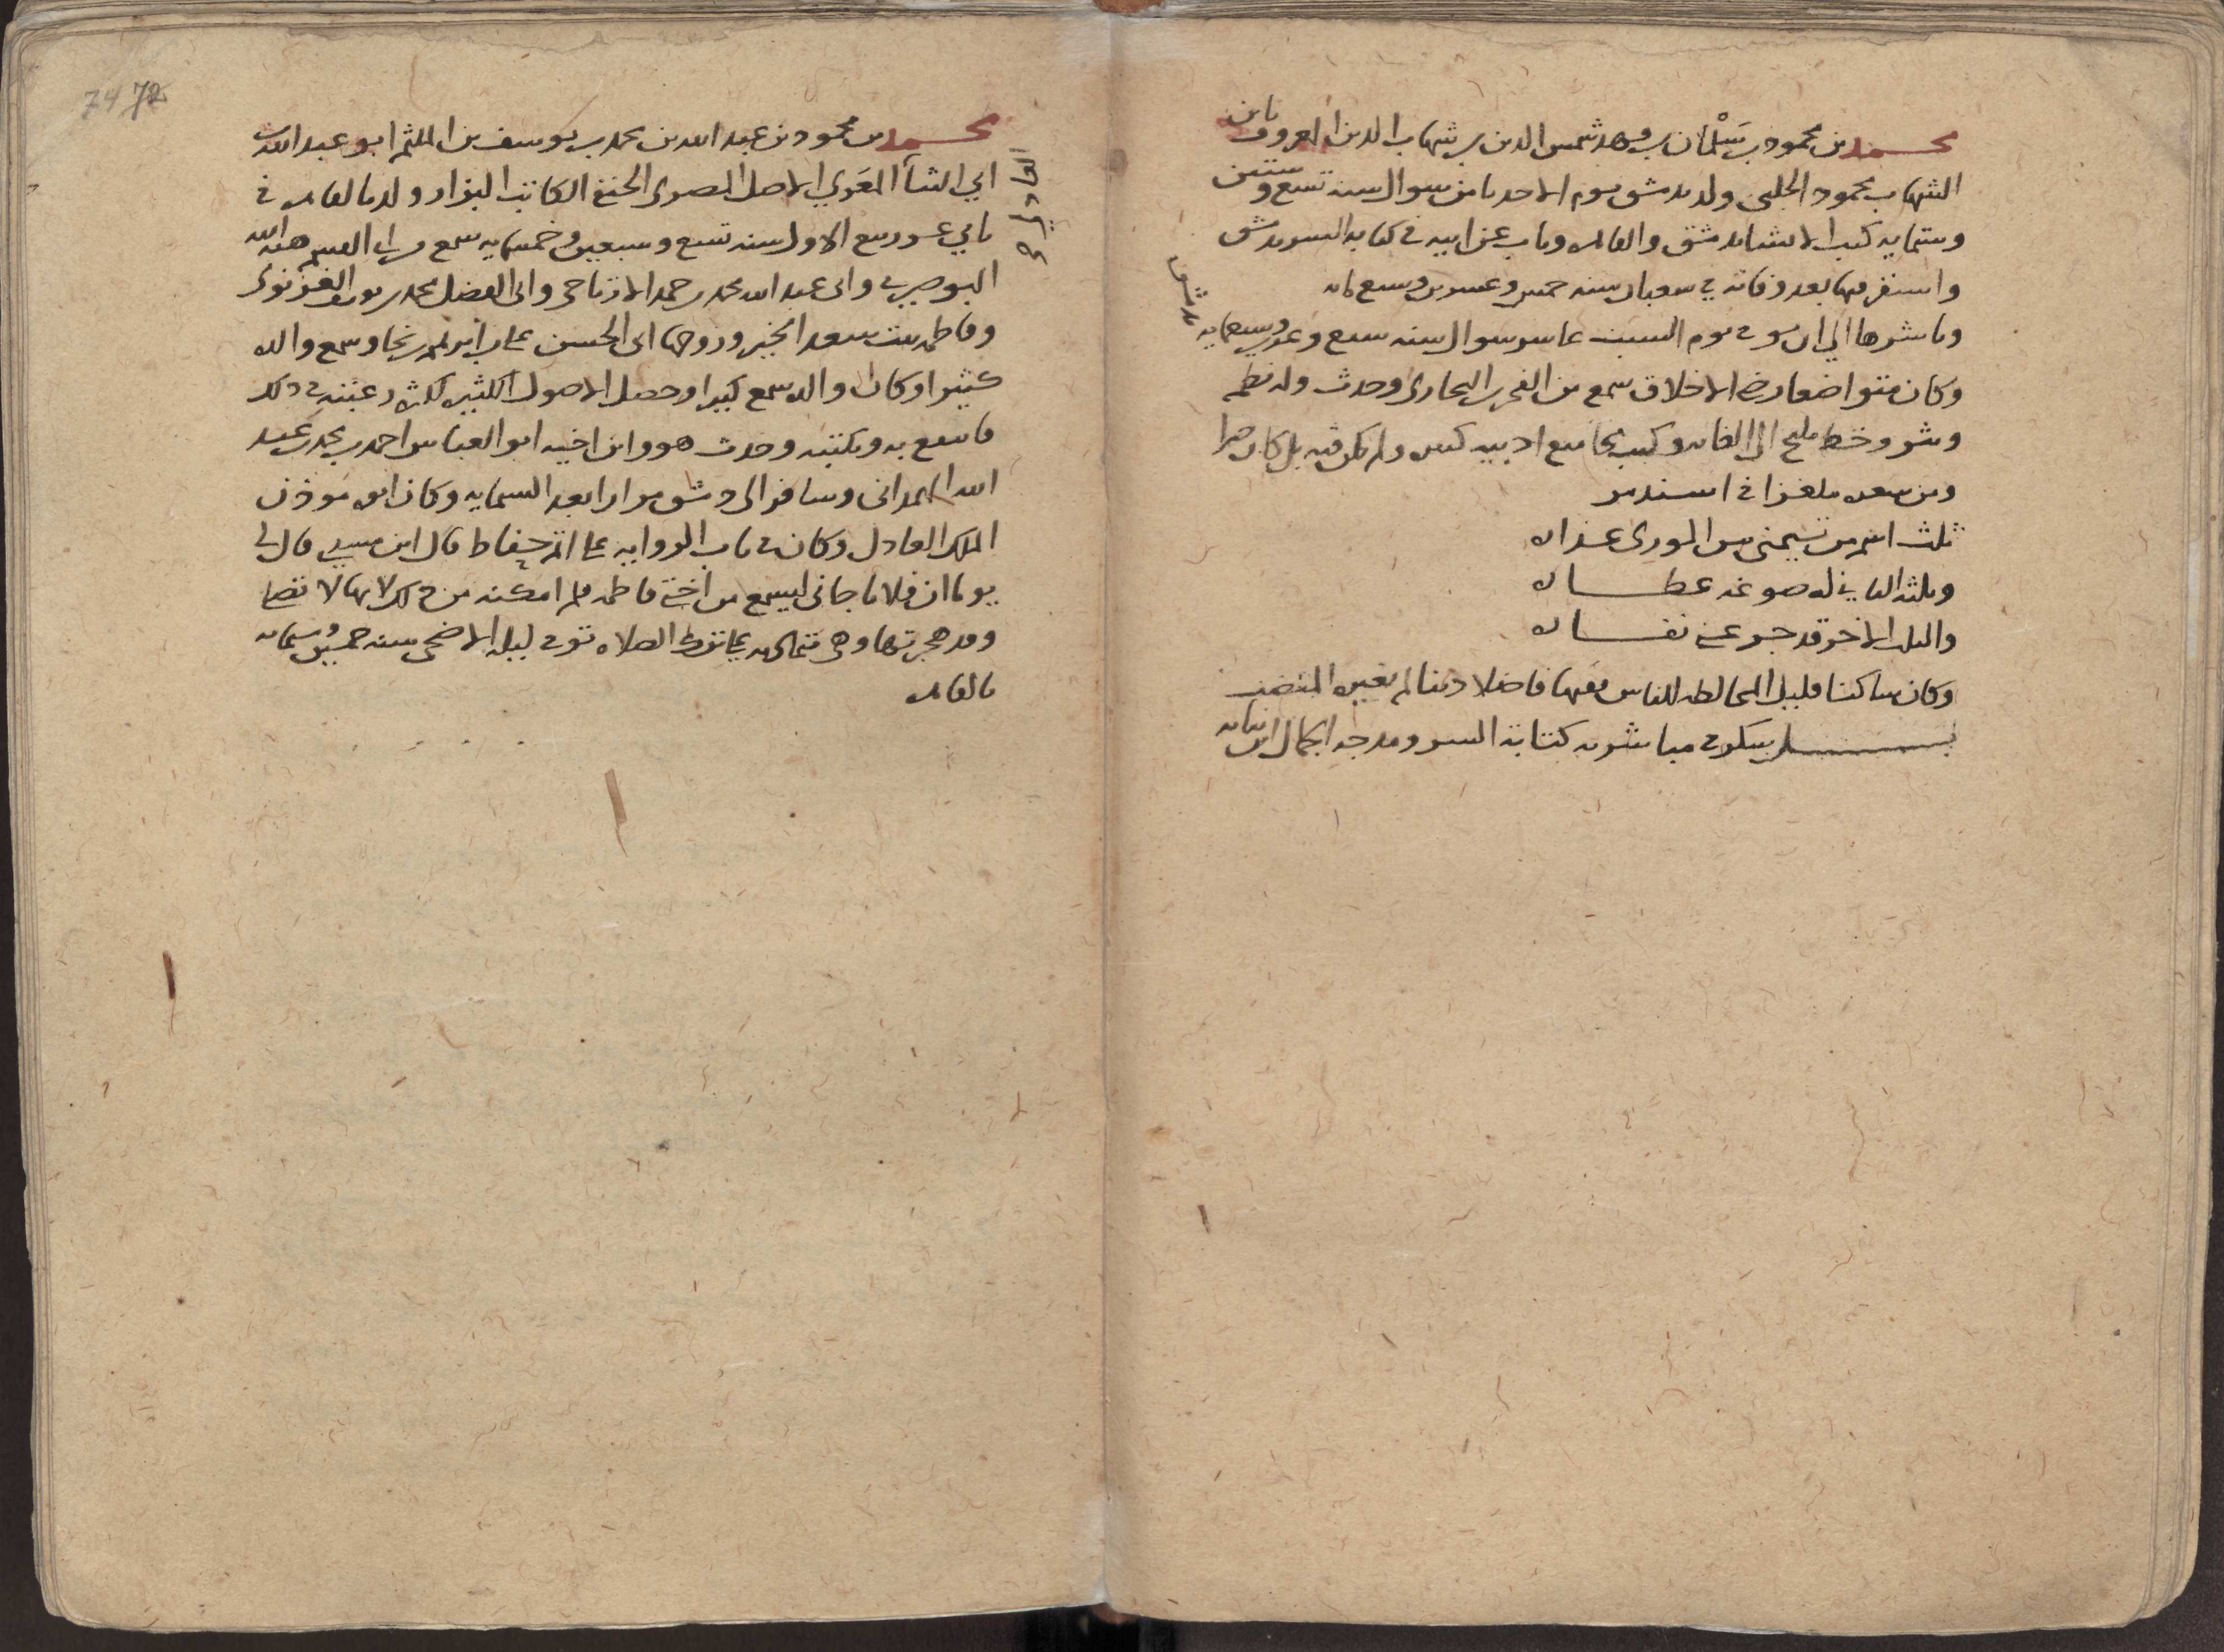 محمد بن محمود بن سَلْمان بن فهد شمس الدين بن شهاب الدين المعروف بابن
الشهاب محمود الحلبى ولد بدمشق يوم الاحد ثامن شوال سنه تسع وستين
وستمايه كتب الانشا بدمشق والقاهره وناب عن ابيه فى كتابه السر بدمشق
واستقر فيها بعد وفاته في شعبان سنه خمس وعشرين وسبعمايه
وباشرها الي ان توفى يوم السبت عاشر شوال سنه سبع وعشرين وسبعمايه بدمشق
وكان متواضعا رضى الاخلاق سمع من الفخر بن البخارى وحدث وله نظم
ونثر وخط مليح الى الغايه وكتب مجاميع ادبيه كثيره ولم يكن فيه شر بل كان خيرا
ومن شعره ملغزا فى اسندمر
ثلث اسم من تيمنى من الورى عذاره
وثلثه الثاني له ضوعه عطاره
والثلث الاخر قد جر عنى نفاره
وكان ساكنا قليل المخالطه للناس فقيها فاضلا دينا لم يغيره المنصب
بل شكرت مباشرته كتابة السر ومدحه الجمال ابن نباته
74 72
محمد بن محمود بن عبد الله بن محمد بن يوسف بن الملثم ابو عبد الله بن
ابي الثنا المغربي الاصل المصرى الحنفى الكاتب البزار ولد بالقاهره فى
ثاني عشر ربيع الاول سنه تسع وسبعين وخمسمايه سمع من ابى القسم هبة الله
البوصيرى وابى عبد الله محمد بن حمد الارتاحى وابى الفضل محمد بن يوسف الغزنوى
وفاطمه بنت سعد الخير وزوجها ابى الحسن على بن ابرهيم بن نجا وسمع والده
كثيرا وكان والده سمع كثيرا وحصل الاصول الكثيره لكثرة رغبته فى ذلك
فاسمع به وبكتبه وحدث هو وابن اخيه ابو العباس احمد بن محمد بن عبد
الله الهمدانى وسافر الى دمشق مرارا بعد الستمايه وكان ابوه مؤذن
الملك العادل وكان فى باب الروايه على اتم احتياط قال ابن مسدى قال لى
يوما ان فلانا جانى ليسمع من اختى فاطمه فلم امكنه من ذلك لانها لا تصلى
وقد هجرتها وهى متماديه على ترك الصلاه توفى ليله الاضحى سنه خمسين وستمايه
بالقاهره